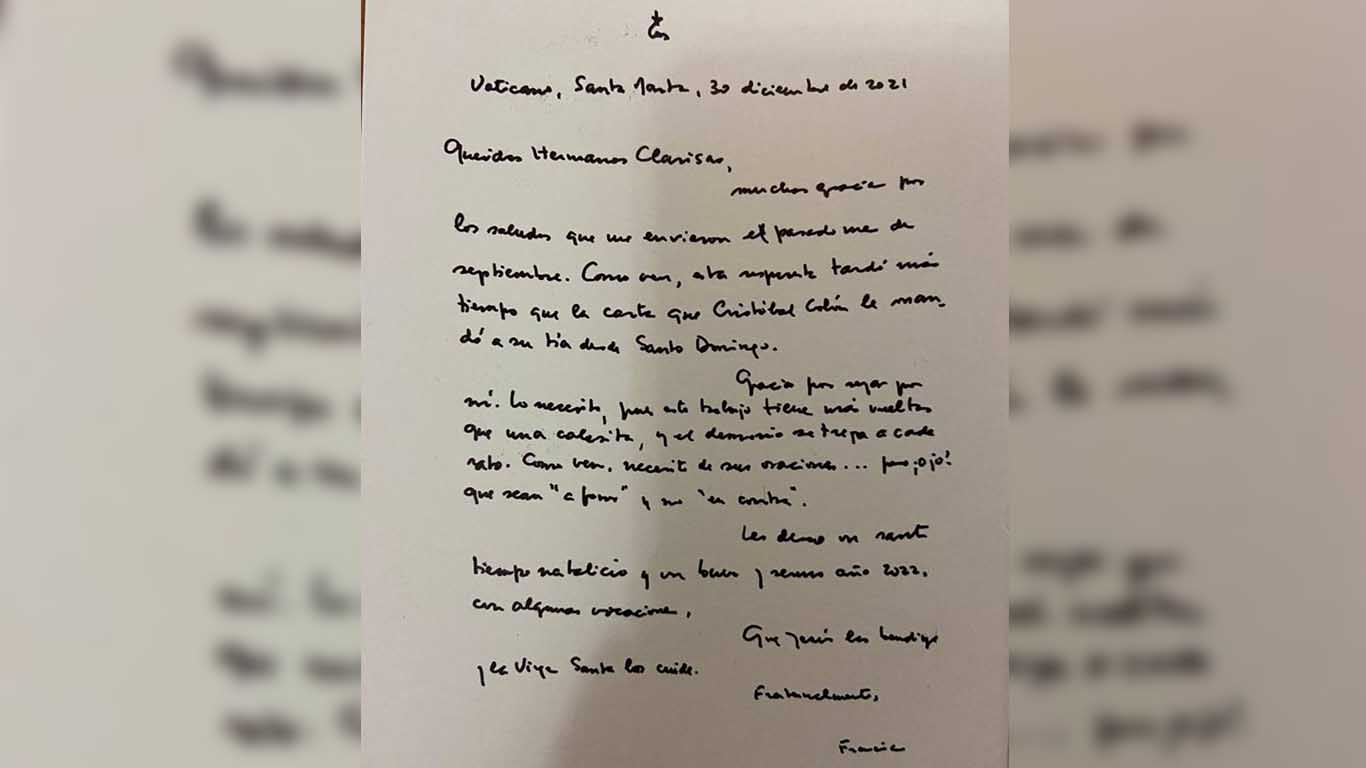 Vaticano, Santa Marta, 30 diciembre de 2021
Queridas Hermanas Clarisas,
muchas gracias por
los saludos que me enviaron el pasado mes de
septiembre. Como ven, esta respuesta tardó más
tiempo que la carta que Cristóbal Colón le man-
dó a su tía desde Santo Domingo.
Gracias por rezar por
mí. Lo necesito, pues este trabajo tiene más vueltas
que una calesita, y el demonio se trepa a cada
rato. Como ven, necesito de sus oraciones... pero ¡ojo!
que sean "a favor" y no "en contra".
Les deseo un santo
tiempo natalicio y un buen y sereno año 2022,
con algunas vocaciones,
Que Jesús las bendiga
y la Virgen Santa las cuide.
Fraternalmente,
Francisco